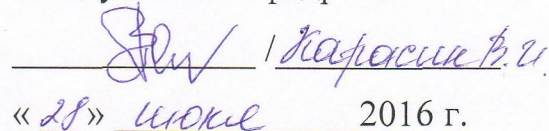 / Карасик В.И.
« 28 » июня 2016 г.